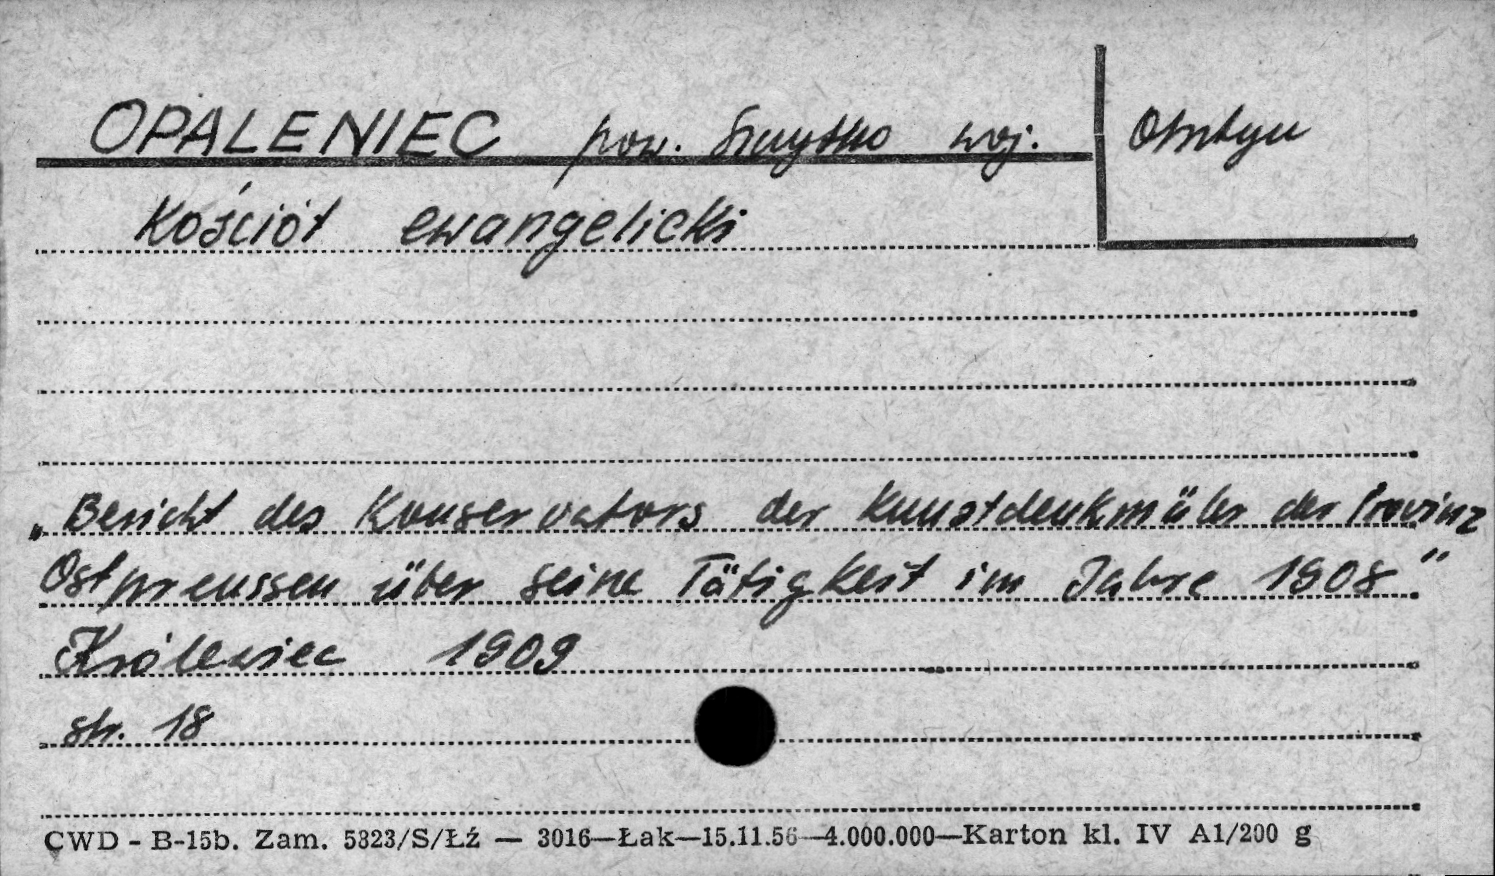 OPALENIEC pow. Szczytno woj. Olsztyn
Kościół ewangelicki
„Bericht des Konservators der Kunstdenkmäler der Provinz
Ostpreussen über seine Tätigkeit im Jahre 1908”
Królewiec 1909
str. 18
CWD - B-15b. Zam. 5323/S/Łź — 3016—Łak—15.11.56—4.000.000—Karton kl. IV A1/200 g